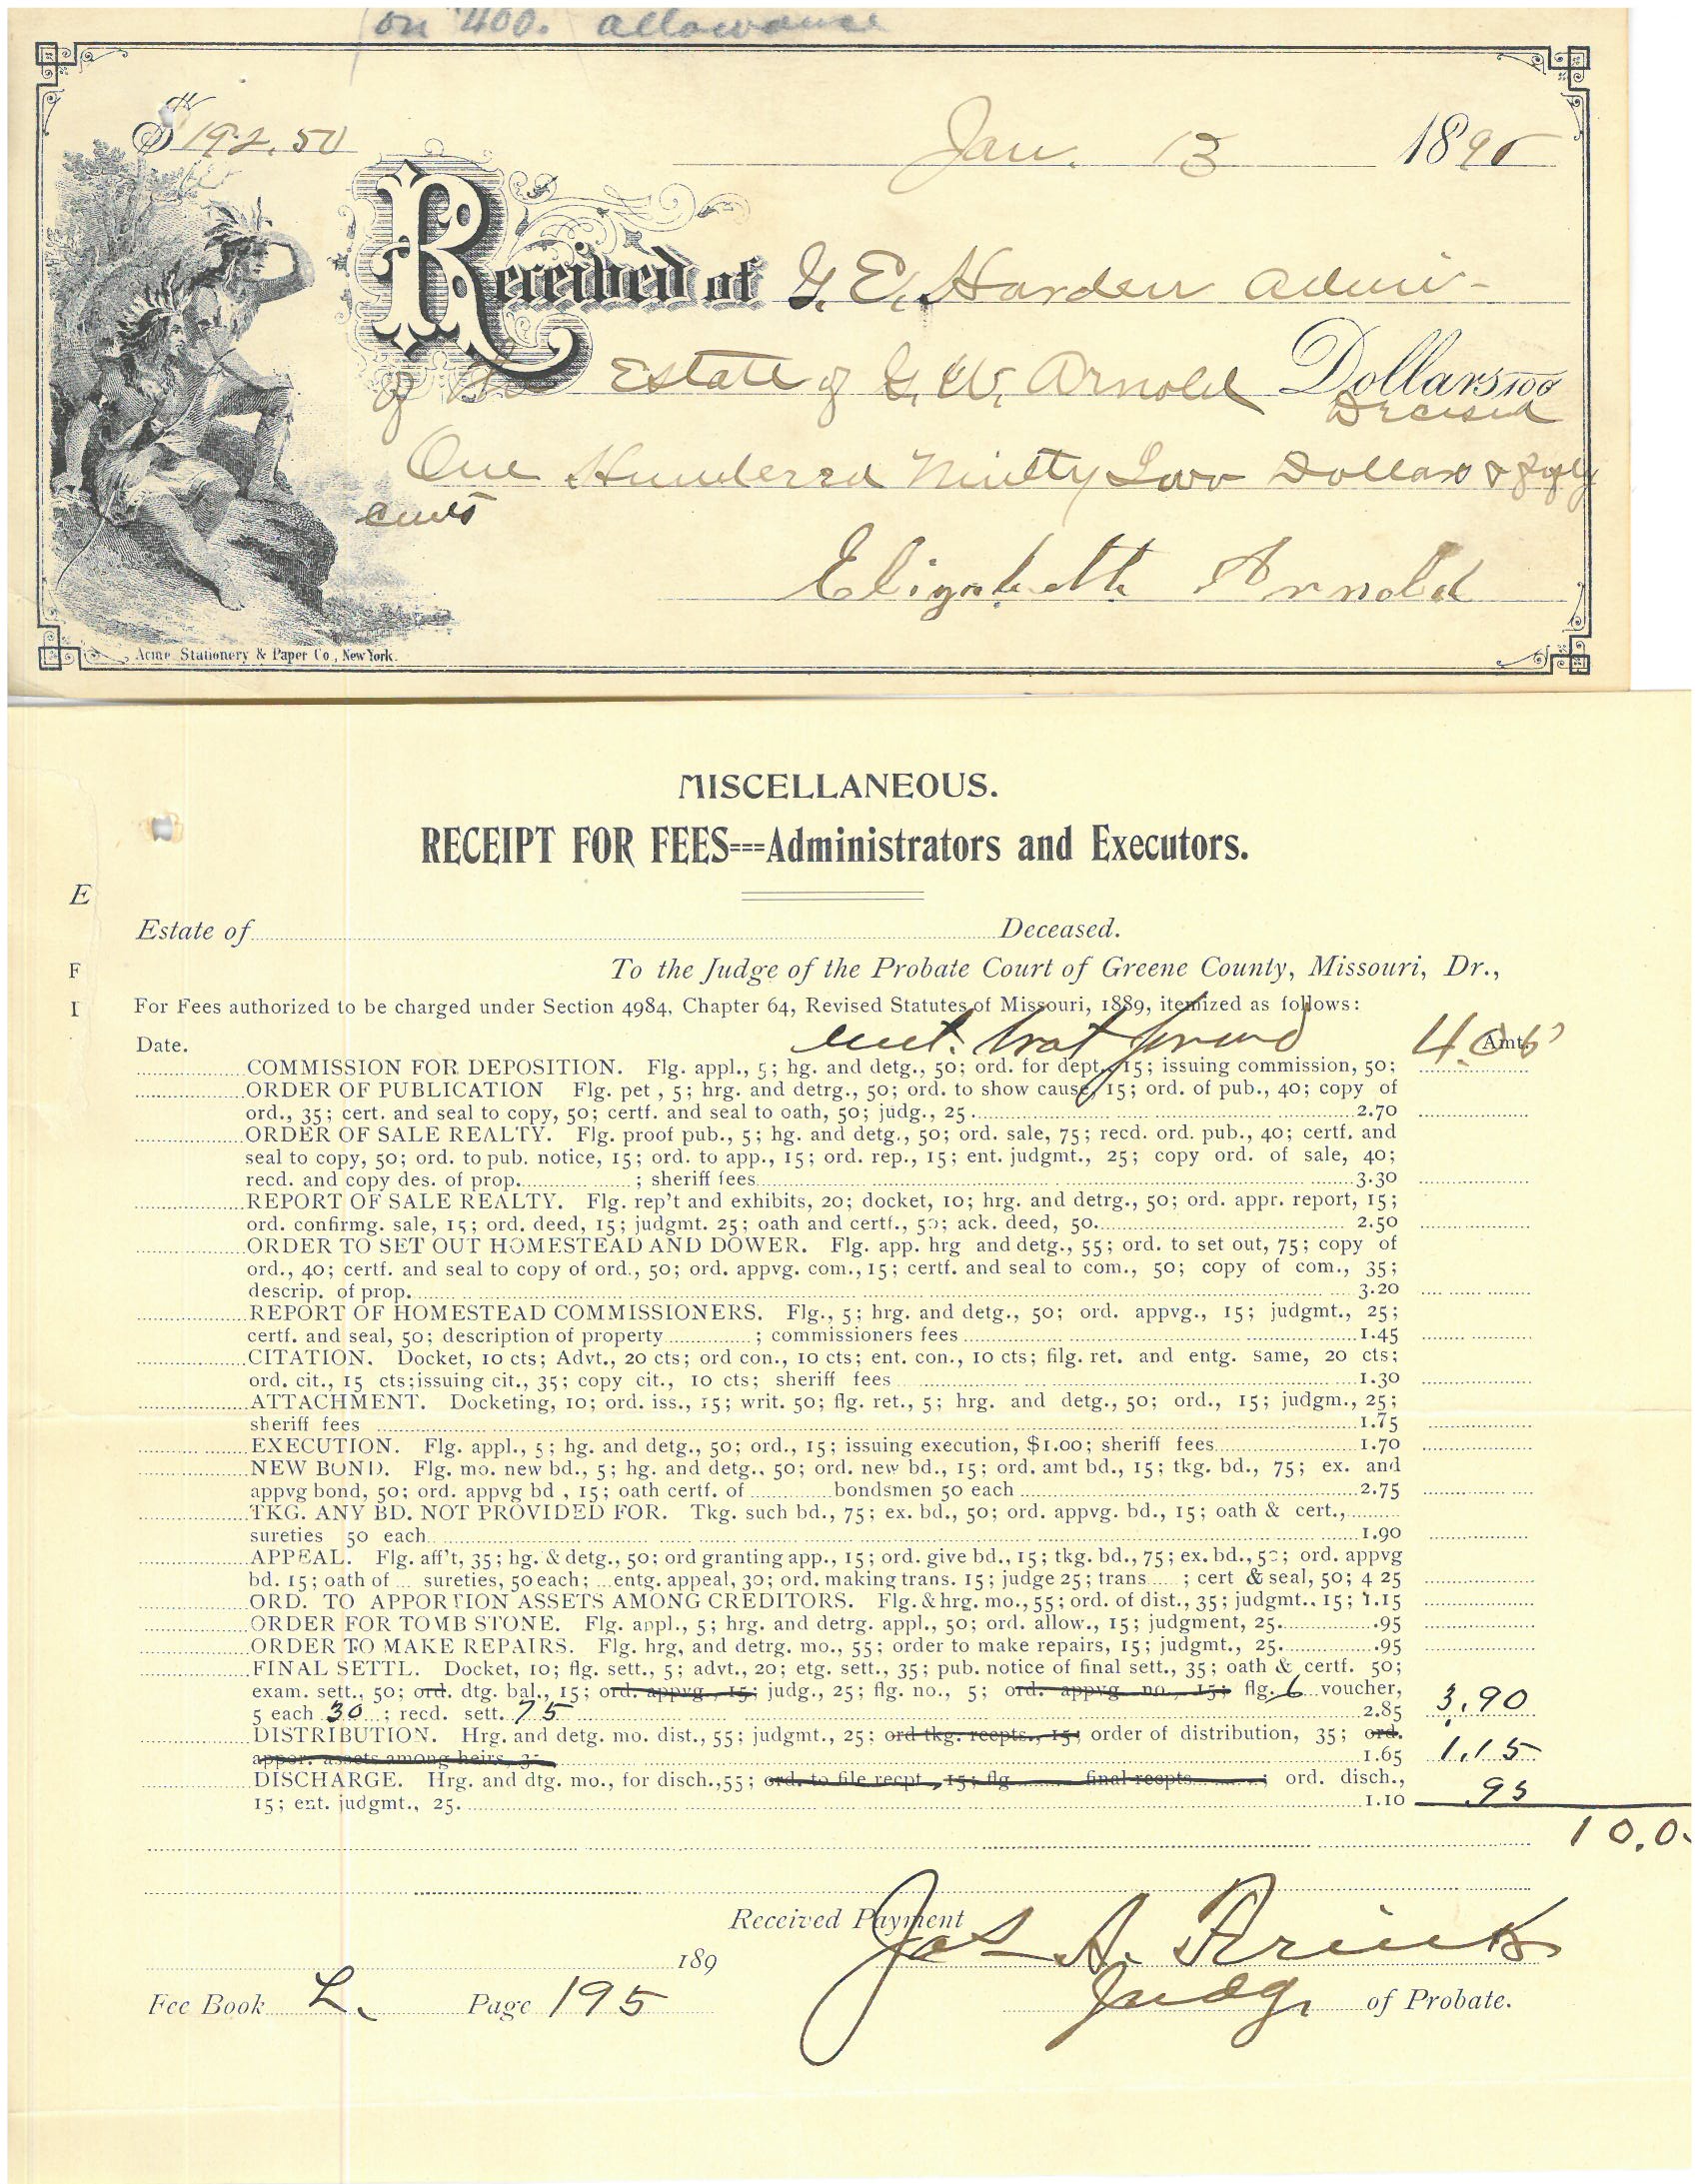 on 400. allowance
$ 192.50
Jan. 13 1895
Received of G. E. Harden Admi-
of the Estate of G. W. Arnold Dollars 100
Decesed
One Hunderred Nintty Two Dollars & fifty
cents
Elizabeth Arnold
Acme Stationery & Paper Co., New York.
MISCELLANEOUS.
RECEIPT FOR FEES---Administrators and Executors.
E
Estate of Deceased.
F
To the Judge of the Probate Court of Greene County, Missouri, Dr.,
I
For Fees authorized to be charged under Section 4984, Chapter 64, Revised Statutes of Missouri, 1889, itemized as follows:
Date. amt. brot forward Amt.
COMMISSION FOR DEPOSITION. Flg. appl., 5; hg. and detg., 50; ord. for dept., 15; issuing commission, 50;
ORDER OF PUBLICATION Flg. pet , 5; hrg. and detrg., 50; ord. to show cause, 15; ord. of pub., 40; copy of
ord., 35; cert. and seal to copy, 50; certf. and seal to oath, 50; judg., 25 2.70
ORDER OF SALE REALTY. Flg. proof pub., 5; hg. and detg., 50; ord. sale, 75; recd. ord. pub., 40; certf. and
seal to copy, 50; ord. to pub. notice, 15; ord. to app., 15; ord. rep., 15; ent. judgmt., 25; copy ord. of sale, 40;
recd. and copy des. of prop. ; sheriff fees 3.30
REPORT OF SALE REALTY. Flg. rep't and exhibits, 20; docket, 10; hrg. and detrg., 50; ord. appr. report, 15;
ord. confirmg. sale, 15; ord. deed, 15; judgmt. 25; oath and certf., 50; ack. deed, 50. 2.50
ORDER TO SET OUT HOMESTEAD AND DOWER. Flg. app. hrg and detg., 55; ord. to set out, 75; copy of
ord., 40; certf. and seal to copy of ord., 50; ord. appvg. com., 15; certf. and seal to com., 50; copy of com., 35;
descrip. of prop. 3.20
REPORT OF HOMESTEAD COMMISSIONERS. Flg., 5; hrg. and detg., 50; ord. appvg., 15; judgmt., 25;
certf. and seal, 50; description of property ; commissioners fees 1.45
CITATION. Docket, 10 cts; Advt., 20 cts; ord con., 10 cts; ent. con., 10 cts; filg. ret. and entg. same, 20 cts;
ord. cit., 15 cts;issuing cit., 35; copy cit., 10 cts; sheriff fees 1.30
ATTACHMENT. Docketing, 10; ord. iss., 15; writ. 50; flg. ret., 5; hrg. and detg., 50; ord., 15; judgm., 25;
sheriff fees 1.75
EXECUTION. Flg. appl., 5; hg. and detg., 50; ord., 15; issuing execution, $1.00; sheriff fees 1.70
NEW BOND. Flg. mo. new bd., 5; hg. and detg., 50; ord. new bd., 15; ord. amt bd., 15; tkg. bd., 75; ex. and
appvg bond, 50; ord. appvg bd , 15; oath certf. of bondsmen 50 each 2.75
TKG. ANY BD. NOT PROVIDED FOR. Tkg. such bd., 75; ex. bd., 50; ord. appvg. bd., 15; oath & cert.,
sureties 50 each 1.90
APPEAL. Flg. aff't, 35; hg. & detg., 50; ord granting app., 15; ord. give bd., 15; tkg. bd., 75; ex. bd., 50; ord. appvg
bd. 15; oath of ... sureties, 50 each; ...entg. appeal, 30; ord. making trans. 15; judge 25; trans ; cert & seal, 50; 4 25
ORD. TO APPORTION ASSETS AMONG CREDITORS. Flg. & hrg. mo., 55; ord. of dist., 35; judgmt., 15; 1.15
ORDER FOR TOMB STONE. Flg. appl., 5; hrg. and detrg. appl., 50; ord. allow., 15; judgment, 25. .95
ORDER TO MAKE REPAIRS. Flg. hrg, and detrg. mo., 55; order to make repairs, 15; judgmt., 25. .95
FINAL SETTL. Docket, 10; flg. sett., 5; advt., 20; etg. sett., 35; pub. notice of final sett., 35; oath & certf. 50;
exam. sett., 50; ord. dtg. bal., 15; ord. appvg., 15; judg., 25; flg. no., 5; ord. appvg. no., 15; flg. 6 voucher,
5 each 30 ; recd. sett. 75 2.85 3.90
DISTRIBUTION. Hrg. and detg. mo. dist., 55; judgmt., 25; ord tkg. recpts., 15; order of distribution, 35; ord.
appor. assets among heirs, 35 1.65 1.15
DISCHARGE. Hrg. and dtg. mo., for disch., 55; ord. to file recpt., 15; flg final recpts ; ord. disch.,
15; ent. judgmt., 25. 1.10 .95
10.0
Received Payment
Jas A. Frink
189
Fee Book L. Page 195 Judge of Probate.